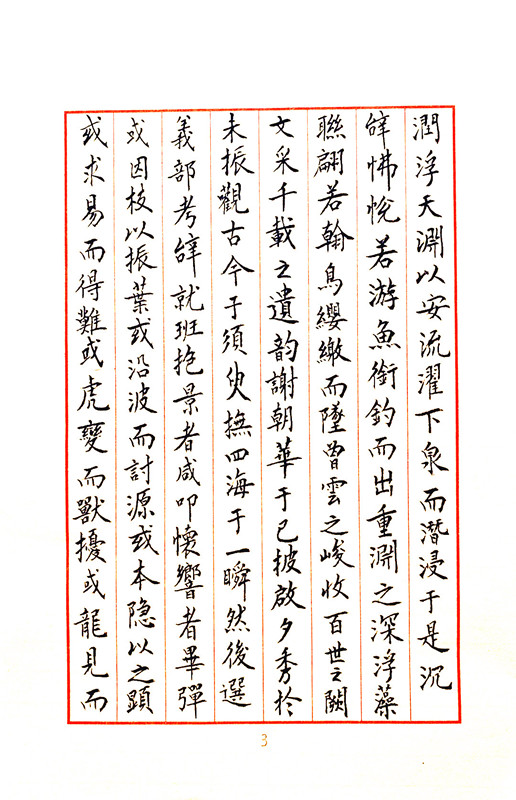 潤浮天淵以安流濯下泉而潛浸于是沉
辝怫悅若游魚銜鈎而出重淵之深浮藻
聯翩若翰鳥纓繳而墜曾雲之峻收百世之闕
文采千載之遺韵謝朝華于已披啟夕秀於
未振觀古今于須臾撫四海于一瞬然後選
義部考辝就班抱景者咸叩懷響者畢彈
或因枝以振葉或沿波而討源或本隐以之顯
或求易而得難或虎變而獸擾或龍見而
3